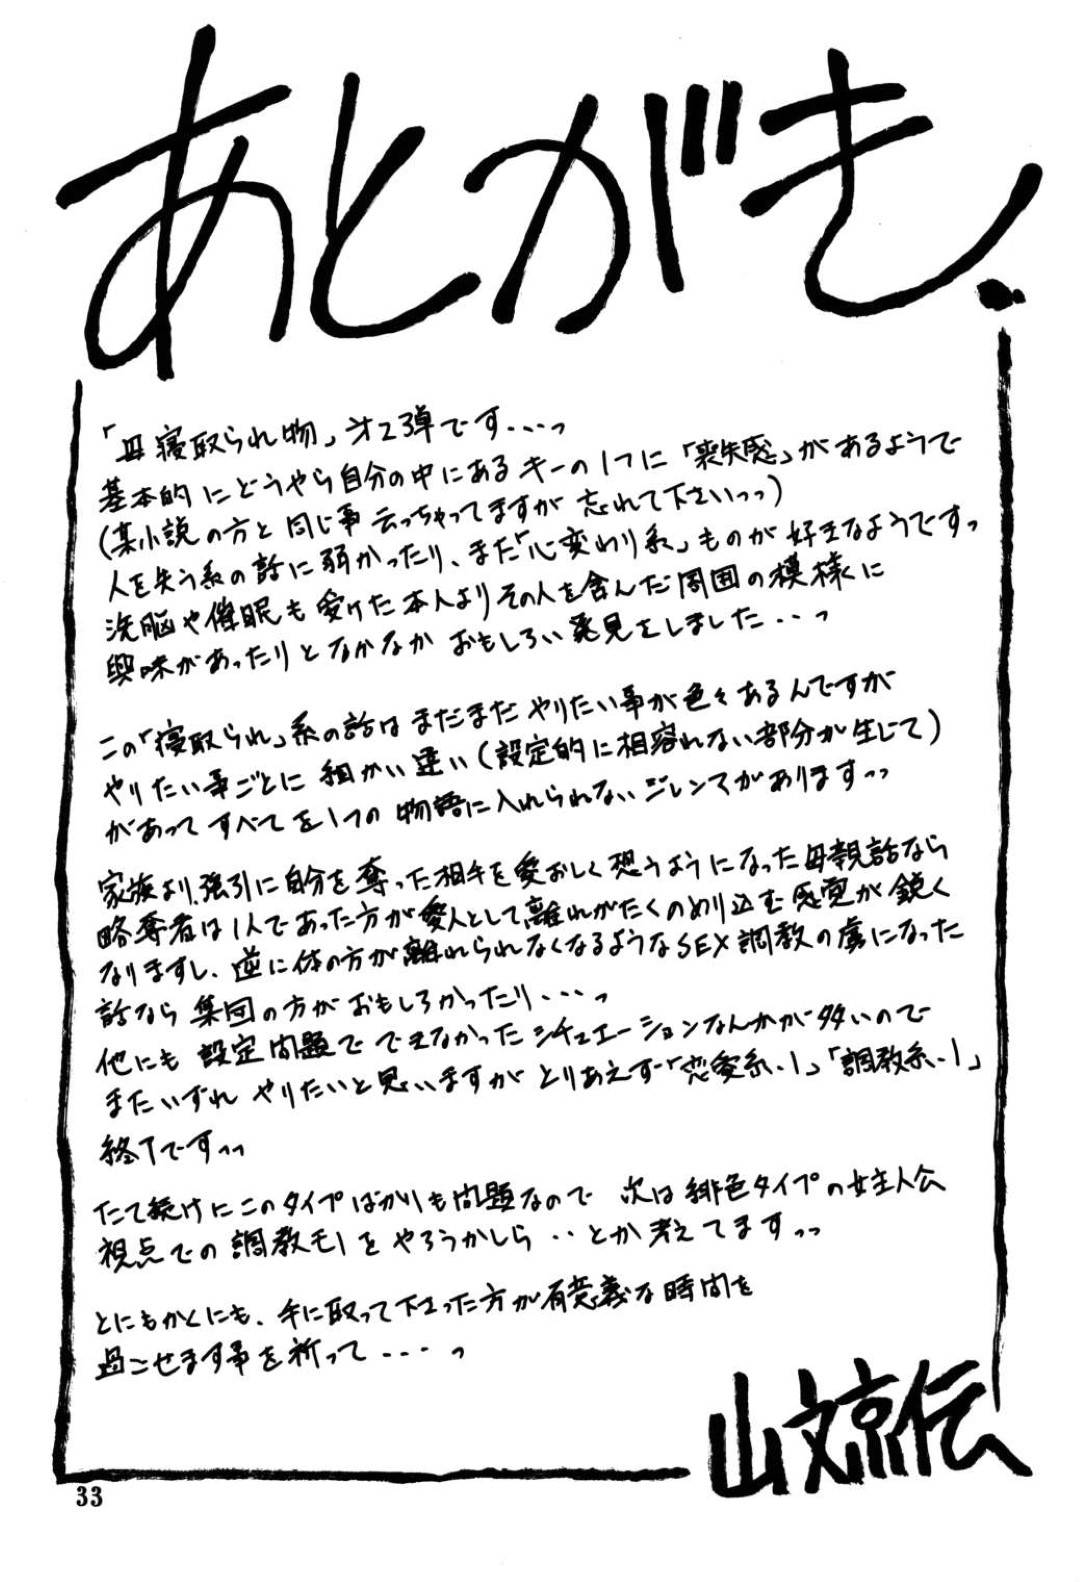 あとがき.
「母寢取られ物」才2弾です...っ
基本的にどうやら自分の中にあるキーの1つに「喪失感」があるようで
(某小説の方と同じ事云っちゃってますが忘れて下さいっっ)
人を失う系の話に弱かったり、また「心変わり系」ものが好きなようですっ
洗脳や催眠も受けた本人よりその人を含んだ周囲の模様に
興味があったりとなかなかおもしろい発見をしました...っ
この「寝取られ」系の話はまだまだやりたい事が色々あるんですが
やりたい事ごとに細かい違い(設定的に相容れない部分が生じて)
があってすべてを1つの物語に入れられないジレンマがありますっっ
家族より強引に自分を奪った相手を愛おしく想うようになった母親話なら
略奪者は1人であった方が愛人として離れがたくのめり込む感覚が鋭く
なりますし、逆に体の方が離れられなくなるようなSEX調教の虜になった
話なら集団の方がおもしろかったり...っ
他にも設定問題でできなかったシチュエーションなんかが多いので
またいずれやりたいと思いますがとりあえず「恋愛系.1」「調教系.1」
終了ですっっ
たて続けにこのタイプばかりも問題なので次は緋色タイプの女主人公
視点での調教モノをやろうかしら..とか考えてますっっ
とにもかくにも、手に取って下さった方が有意義な時間を
過ごせます事を祈って...っ
山文京伝
33